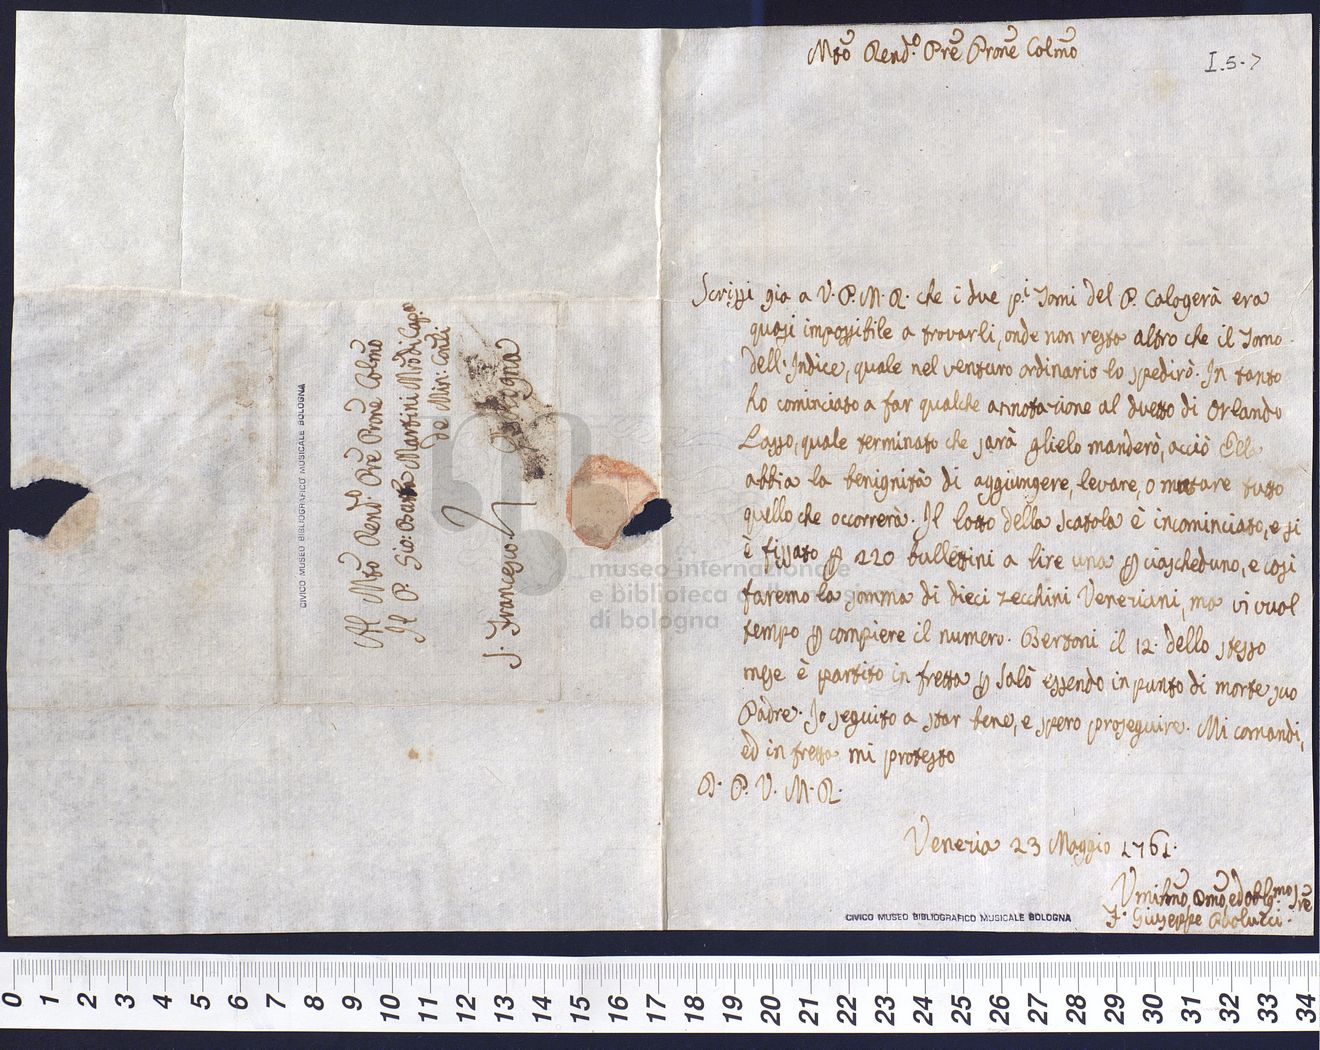 Mto Rendo. Pre Prone Colmo
I.5.7
Scrissi gia a V. P. M. R. che i due pi. Tomi del P. Calogerà era
quasi impossibile a trovarli, onde non resta altro che il Tomo
dell'Indice, quale nel venturo ordinario lo spedirò. In tanto
ho cominciato a far qualche annotazione al duetto di Orlando
Lasso, quale terminato che sarà glielo manderò, acciò Ella
abbia la benignità di aggiungere, levare, o mutare tutto
quello che occorrerà. Il lotto della scatola è incominciato, e si
è fissato p 220 bullettini a lire una p ciascheduno, e così
faremo la somma di dieci zecchini Veneziani, ma vi vuol
tempo p compiere il numero. Bertoni il 12. dello stesso
mese è partito in fretta p Salò essendo in punto di morte suo
Padre. Io seguito a star bene, e spero proseguire. Mi comandi,
ed in fretta mi protesto
D. P. V. M. R.
Venezia 23 Maggio 1761.
Umilmo, Dmo, ed obblgmo Sre
F. Giuseppe Paolucci.
CIVICO MUSEO BIBLIOGRAFICO MUSICALE BOLOGNA
Al Mto Rendo. Pre Prone Colmo
Il P. Gio: Batta Martini Mro di Capa
de Min: Conli
S. Francesco
Bologna
CIVICO MUSEO BIBLIOGRAFICO MUSICALE BOLOGNA
museo internazionale
e biblioteca della musica
di bologna
0 1 2 3 4 5 6 7 8 9 10 11 12 13 14 15 16 17 18 19 20 21 22 23 24 25 26 27 28 29 30 31 32 33 34